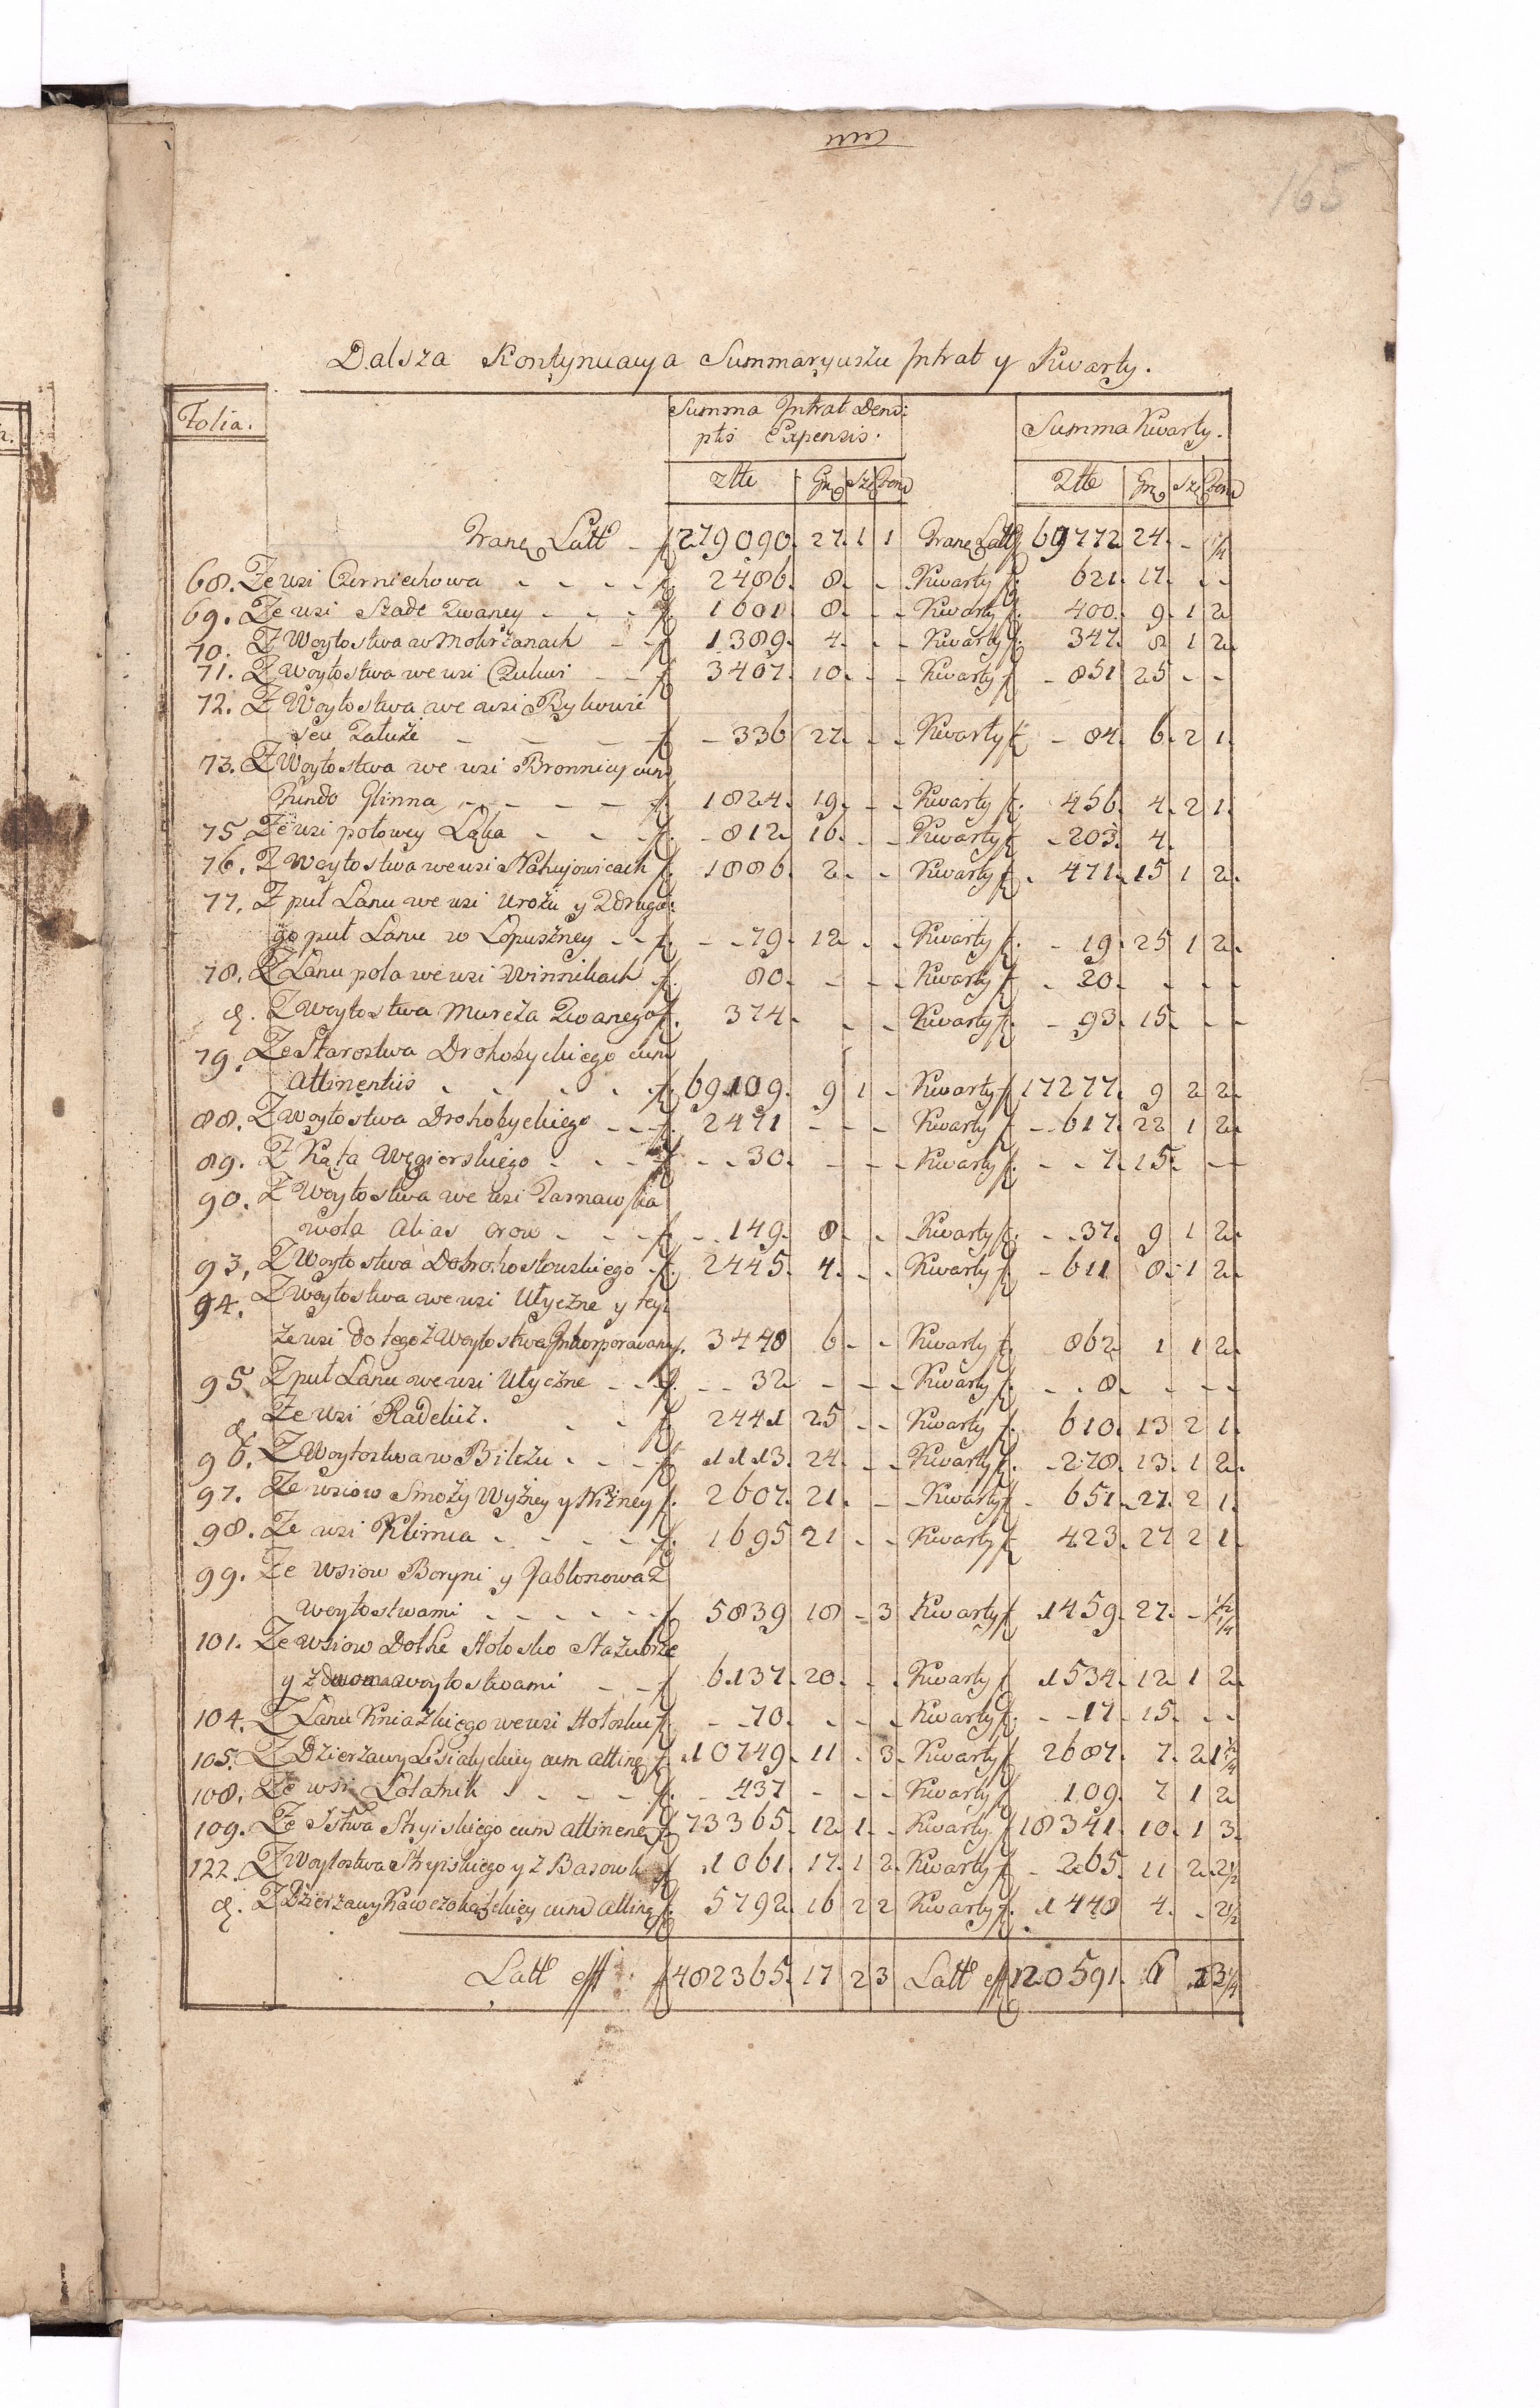 165
Dalsza Kontynuacya Summaryuszu Jntrat y Kwarty.
Folia. Summa Jntrat Dem: Summa Kwarty.
ptis Expensis.
Ztte Gr Sze Den Ztte Gr Sze Den
Trans Latt f 279090. 27. 1 1 Trans Latt f 69772 24. - 1/4
68. Ze wsi Czerniechowa - - - - f. 2486. 8. - - Kwarty f. 621. 17. - -
69. Ze wsi Szade Zwaney - - - f. 1601 8. - - Kwarty f. 400. 9. 1 2
70. Z Woytostwa w Mokrzanach - - f 1389. 4. - - Kwarty f. 347. 8 1 2.
71. Z Woytostwa we wsi Czukwi - - f 3407. 10. - - Kwarty f - 851 25 - -
72. Z Woytostwa we wsi Rykowie
seu Załuże - - - - f - 336 27. - - Kwarty f - 84. 6. 2 1.
73. Z Woytostwa we wsi Bronnicy cum
Fundo Glinna - - - - - f. 1824. 19. - - Kwarty f. 456. 4. 2 1.
75 Ze wsi połowey Łąka - - - f. - 812 16. - - Kwarty f - 203. 4.
76. Z Woytostwa we wsi Nahujowicach f. 1886. 2. - - Kwarty f. 471. 15 1 2.
77. Z puł Łanu we wsi Urożu y Zdrugie:
go puł Łanu w Łopuszney - - f. - - 79. 12 - - Kwarty f. - 19. 25 1 2.
78. Z Łanu pola we wsi Winnikach f. 80. - - - Kwarty f - 20. - - -
d. Z Woytostwa Mureza Zwanego f. 374 - - - Kwarty f. - 93. 15. - -
79. Ze Starostwa Drohobyckiego cum
Attinentiis - - - - - f. 69109. 9 1 - Kwarty f 17277. 9 2 2.
88. Z Woytostwa Drohobyckiego - - - f. 2471 - - - Kwarty f - - 617. 22 1 2.
89. Z Kąta Węgierskiego - - - f - - 30. - - - Kwarty f. - - 7. 15. - -
90. Z Woytostwa we wsi Tarnawska
wola alias Orow - - - f - - 149. 8 - - Kwarty f. - - 37. 9 1 2.
93. Z Woytostwa Dobrohostowskiego - f. 2445. 4. - - Kwarty f - 611 8. 1 2.
94. Z Woytostwa we wsi Ułyczne y teyi
że wsi do tegoż Woytostwa Jnkorporowaney f. 3448 6 - - Kwarty f. 862 1 1 2.
95. Z puł Łanu we wsi Ułyczne - - f. - - 32 - - - Kwarty f. - - 8. - - -
d Ze wsi Radelicz. - - f 2441 25 - - Kwarty f. 610. 13 2 1.
96. Z Woytostwa w Bilczu - - - - f 1113. 24. - - Kwarty f. - 278. 13. 1 2.
97. Ze wsiow Smoży Wyżney y Niżney f. 2607. 21. - - Kwarty f - 651. 27. 2 1.
98. Ze wsi Klimca - - - - - f. 1695 21 - - Kwarty f 423. 27 2 1.
99. Ze wsiow Boryni y Jabłonowa Z
Woytostwami - - - - - - f 5839 18 - 3 Kwarty f. 1459. 27. - 1/2 1/4
101. Ze wsiow Dołhe Hołosko
y z dwoma woytostwami - - f 6137. 20. - - Kwarty f 1534. 12 1 2.
104. Z Łanu Kniazkiego we wsi Hołosku f. - - 70. - - - Kwarty f. - - 17. 15. - -
105. Z Dzierzawy Lisiatyckiey cum attinen f. 10749. 11 - 3. Kwarty f 2687. 7. 2 1 1/4
108. Ze wsi Łotatnik - - - - f. - 437 - - - Kwarty f 109. 7 1 2
109. Ze Sstwa Stryiskiego cum attinen f. 73365. 12. 1. - Kwarty f 18341. 10. 1 3.
122. Z Woytostwa Stryiskiego y z f 1061. 17. 1 2. Kwarty f - 265. 11 2. 2 1/2
d. Z Dzierzawy cum attinen f. 5792. 16 2 2 Kwarty f. 1448 4. - 2 1/2
Latt eff f 482365. 17 2 3 Latt eff 120591. 6 3 1/4